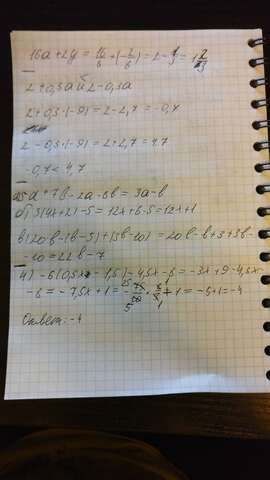 16a + 2y = 16/8 + (-2/6) = 2 - 1/3 = 1 2/3
2 + 0,3a и 2 - 0,3a
2 + 0,3 · (-9) = 2 - 2,7 = -0,7
2 - 0,3 · (-9) = 2 + 2,7 = 4,7
-0,7 < 4,7
a) 5a + 7b - 2a - 8b = 3a - b
б) 3(4x + 2) - 5 = 12x + 6 - 5 = 12x + 1
в) 20b - (b - 3) + (3b - 10) = 20b - b + 3 + 3b -
- 10 = 22b - 7
4) -6(0,5x - 1,5) - 4,5x - 8 = -3x + 9 - 4,5x -
- 8 = -7,5x + 1 = + 1 = -5 + 1 = -4
Ответ: -4